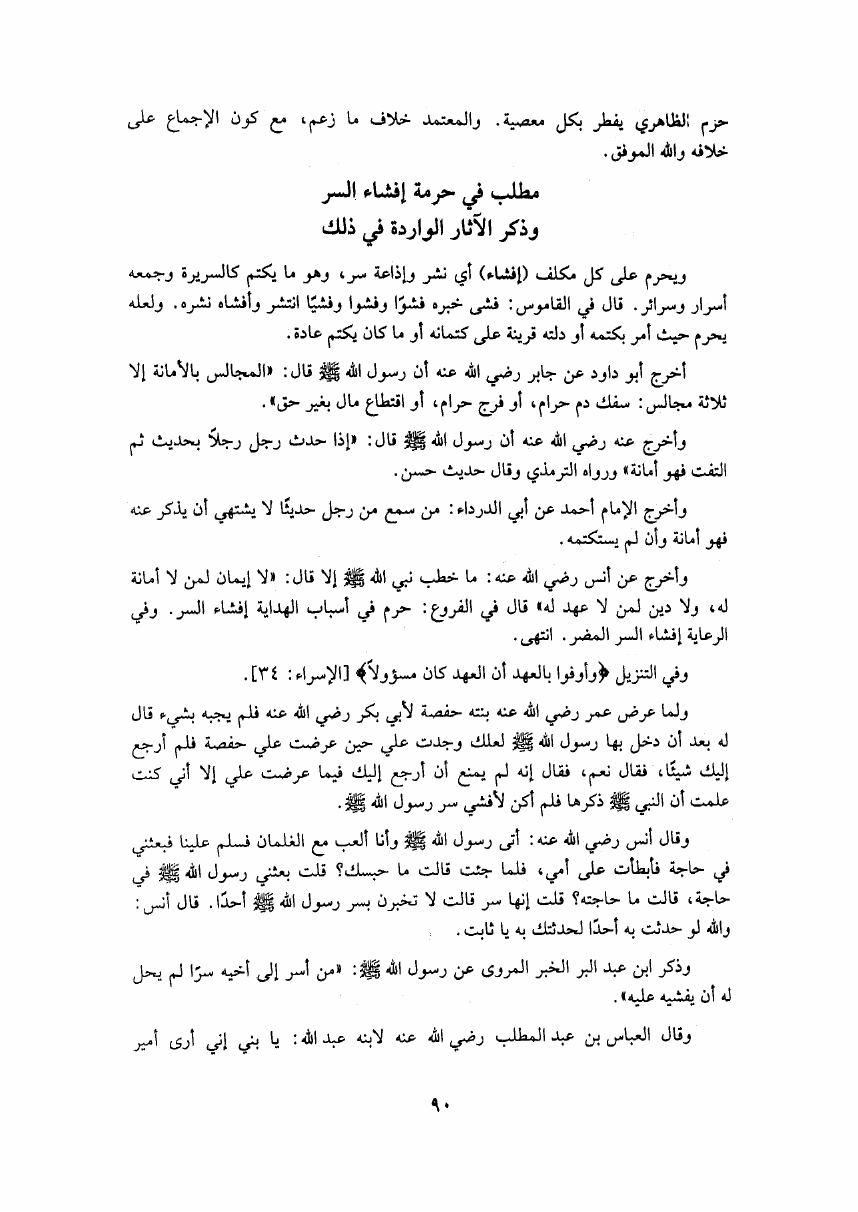 حزم الظاهري يفطر بكل معصية. والمعتمد خلاف ما زعم، مع كون الإجماع على
خلافه والله الموفق.
مطلب في حرمة إفشاء السر
وذكر الآثار الواردة في ذلك
ويحرم على كل مكلف (إفشاء) أي نشر وإذاعة سر، وهو ما يكتم كالسريرة وجمعه
أسرار وسرائر. قال في القاموس: فشى خبره فشوًا وفشوا وفشيًا انتشر وأفشاه نشره. ولعله
يحرم حيث أمر بكتمه أو دلته قرينة على كتمانه أو ما كان يكتم عادة.
أخرج أبو داود عن جابر رضي الله عنه أن رسول الله ﷺ قال: «المجالس بالأمانة إلا
ثلاثة مجالس: سفك دم حرام، أو فرج حرام، أو اقتطاع مال بغير حق».
وأخرج عنه رضي الله عنه أن رسول الله ﷺ قال: «إذا حدث رجل رجلاً بحديث ثم
التفت فهو أمانة» ورواه الترمذي وقال حديث حسن.
وأخرج الإمام أحمد عن أبي الدرداء: من سمع من رجل حديثًا لا يشتهي أن يذكر عنه
فهو أمانة وأن لم يستكتمه.
وأخرج عن أنس رضي الله عنه: ما خطب نبي الله ﷺ إلا قال: «لا إيمان لمن لا أمانة
له، ولا دين لمن لا عهد له» قال في الفروع: حرم في أسباب الهداية إفشاء السر. وفي
الرعاية إفشاء السر المضر. انتهى.
وفي التنزيل ﴿وأوفوا بالعهد أن العهد كان مسؤولاً﴾ [الإسراء: ٣٤].
ولما عرض عمر رضي الله عنه بنته حفصة لأبي بكر رضي الله عنه فلم يجبه بشيء قال
له بعد أن دخل بها رسول الله ﷺ لعلك وجدت علي حين عرضت علي حفصة فلم أرجع
إليك شيئًا، فقال نعم، فقال إنه لم يمنع أن أرجع إليك فيما عرضت علي إلا أني كنت
علمت أن النبي ﷺ ذكرها فلم أكن لأفشي سر رسول الله ﷺ.
وقال أنس رضي الله عنه: أتى رسول الله ﷺ وأنا ألعب مع الغلمان فسلم علينا فبعثني
في حاجة فأبطأت على أمي، فلما جئت قالت ما حبسك؟ قلت بعثني رسول الله ﷺ في
حاجة، قالت ما حاجته؟ قلت إنها سر قالت لا تخبرن بسر رسول الله ﷺ أحدًا. قال أنس:
والله لو حدثت به أحدًا لحدثتك به يا ثابت.
وذكر ابن عبد البر الخبر المروى عن رسول الله ﷺ: «من أسر إلى أخيه سرًا لم يحل
له أن يفشيه عليه».
وقال العباس بن عبد المطلب رضي الله عنه لابنه عبد الله: يا بني إني أرى أمير
٩٠